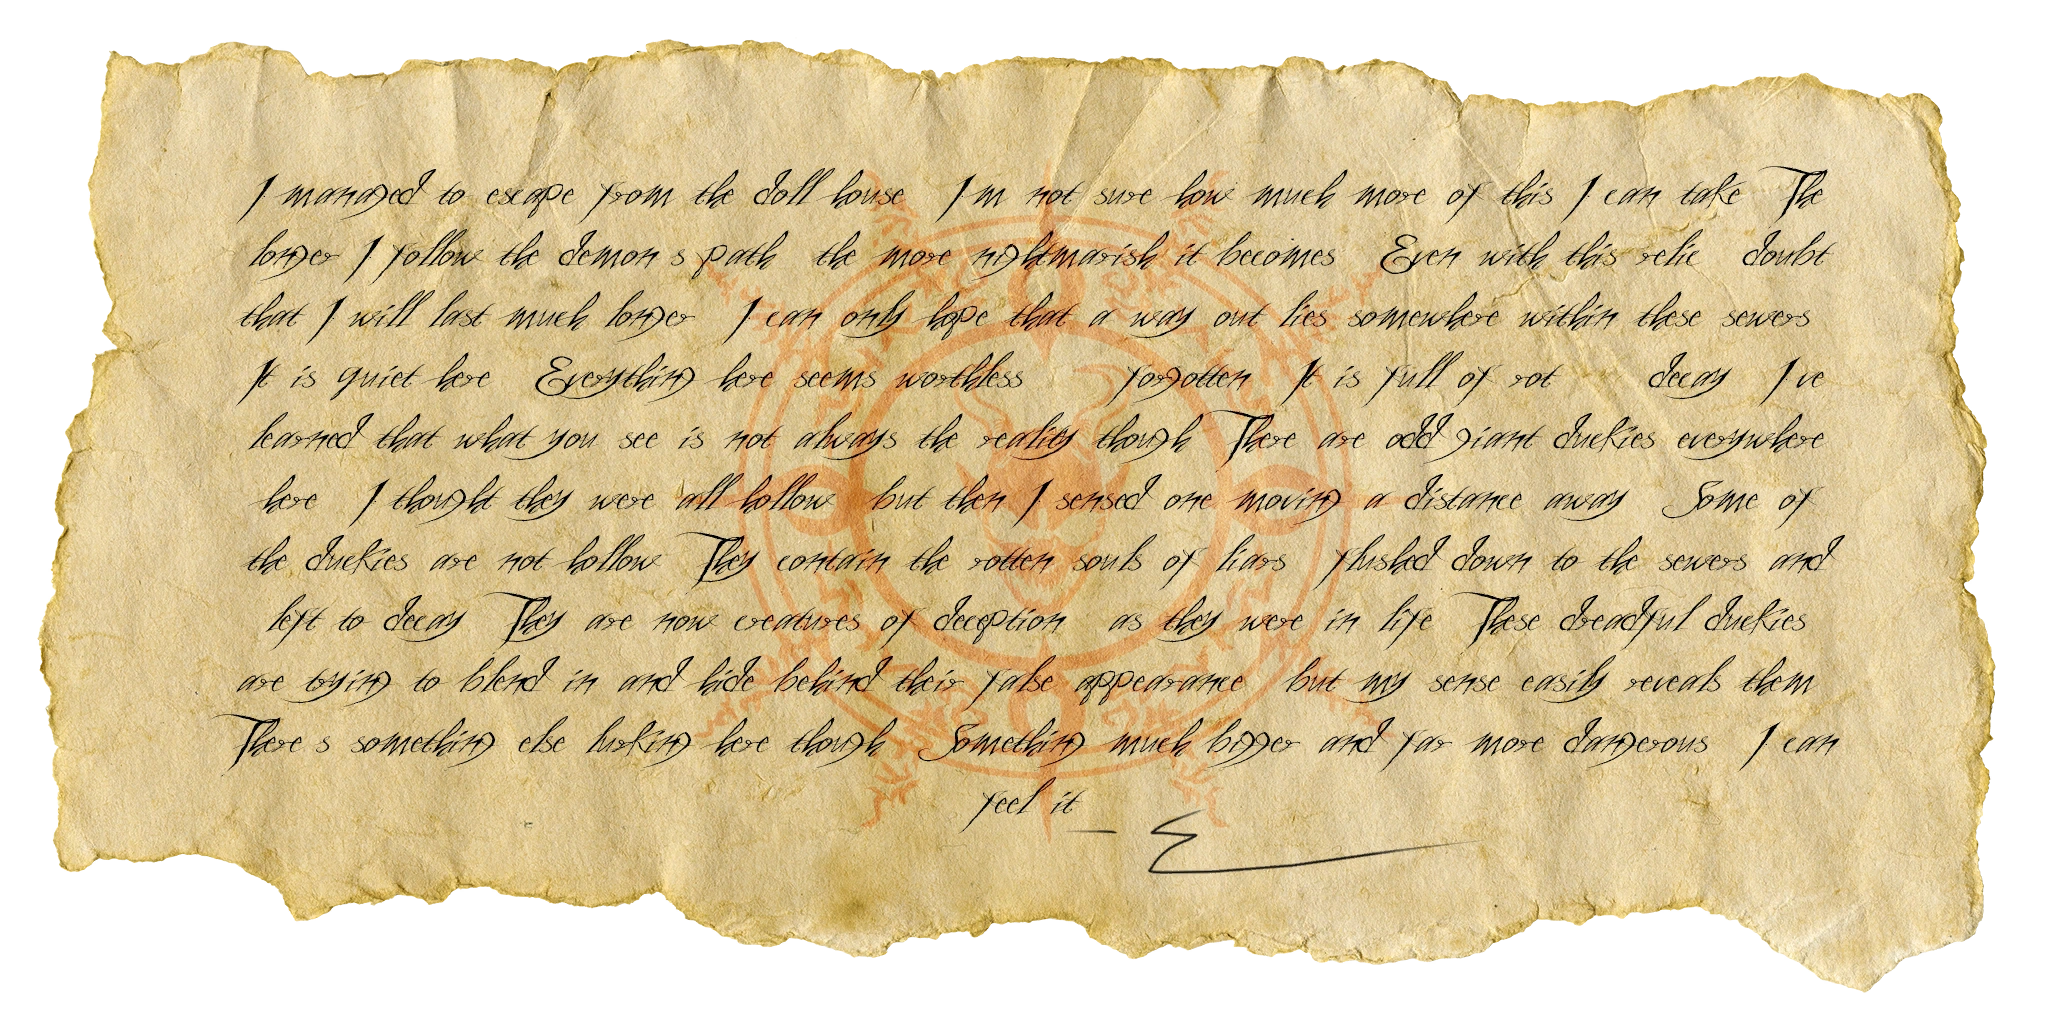 I managed to escape from the doll house I m not sure how much more of this I can take The
longer I follow the demon s path the more nightmarish it becomes Even with this relic doubt
that I will last much longer I can only hope that a way out lies somewhere within these sewers
It is quiet here Everything here seems worthless forgotten It is full of rot decay I ve
learned that what you see is not always the reality though There are odd giant duckies everywhere
here I thought they were all hollow but then I sensed one moving a distance away Some of
the duckies are not hollow They contain the rotten souls of liars flushed down to the sewers and
left to decay They are now creatures of deception as they were in life These dreadful duckies
are trying to blend in and hide behind their false appearance but my sense easily reveals them
There s something else lurking here though Something much bigger and far more dangerous I can
feel it
- E